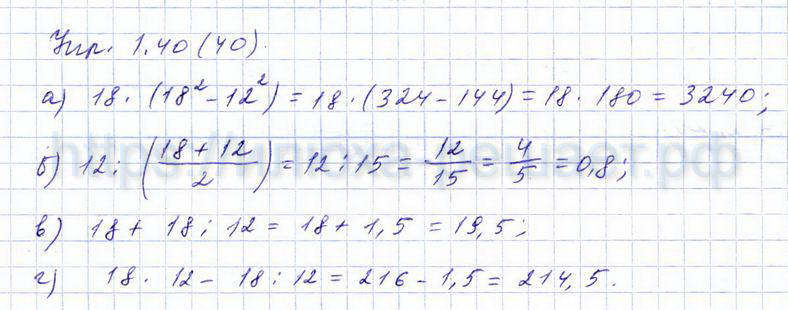 Упр. 1.40 (40).
а) 18 · (18² − 12²) = 18 · (324 − 144) = 18 · 180 = 3240;
б) 12 : ((18 + 12)/2) = 12 : 15 = 12/15 = 4/5 = 0,8;
в) 18 + 18 : 12 = 18 + 1,5 = 19,5;
г) 18 · 12 − 18 : 12 = 216 − 1,5 = 214,5.